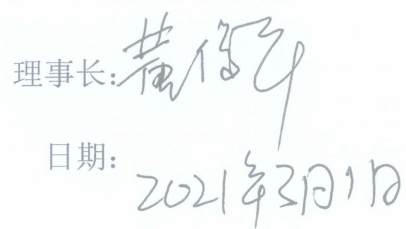 理事长:黄
日期:2021年3月1日